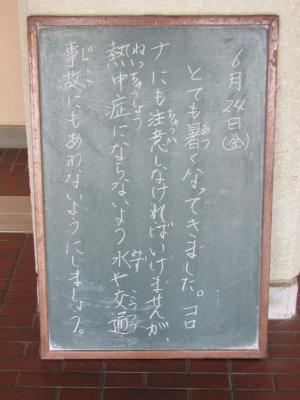 6月24日(金)
とても暑くなってきました。コロ
ナにも注意しなければいけませんが、
熱中症にならないよう水や交通
事故にもあわないようにしましょう。